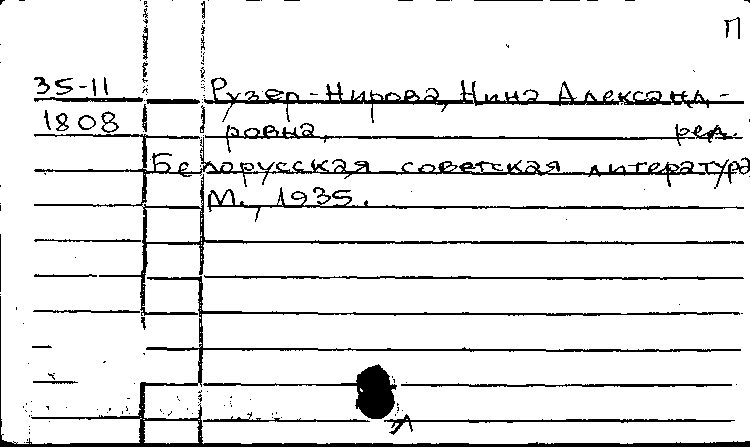 П
35-11 Рузер-Нирова, Нина Александ-
1808 ровна, ред.
Белорусская советская литература
М., 1935.